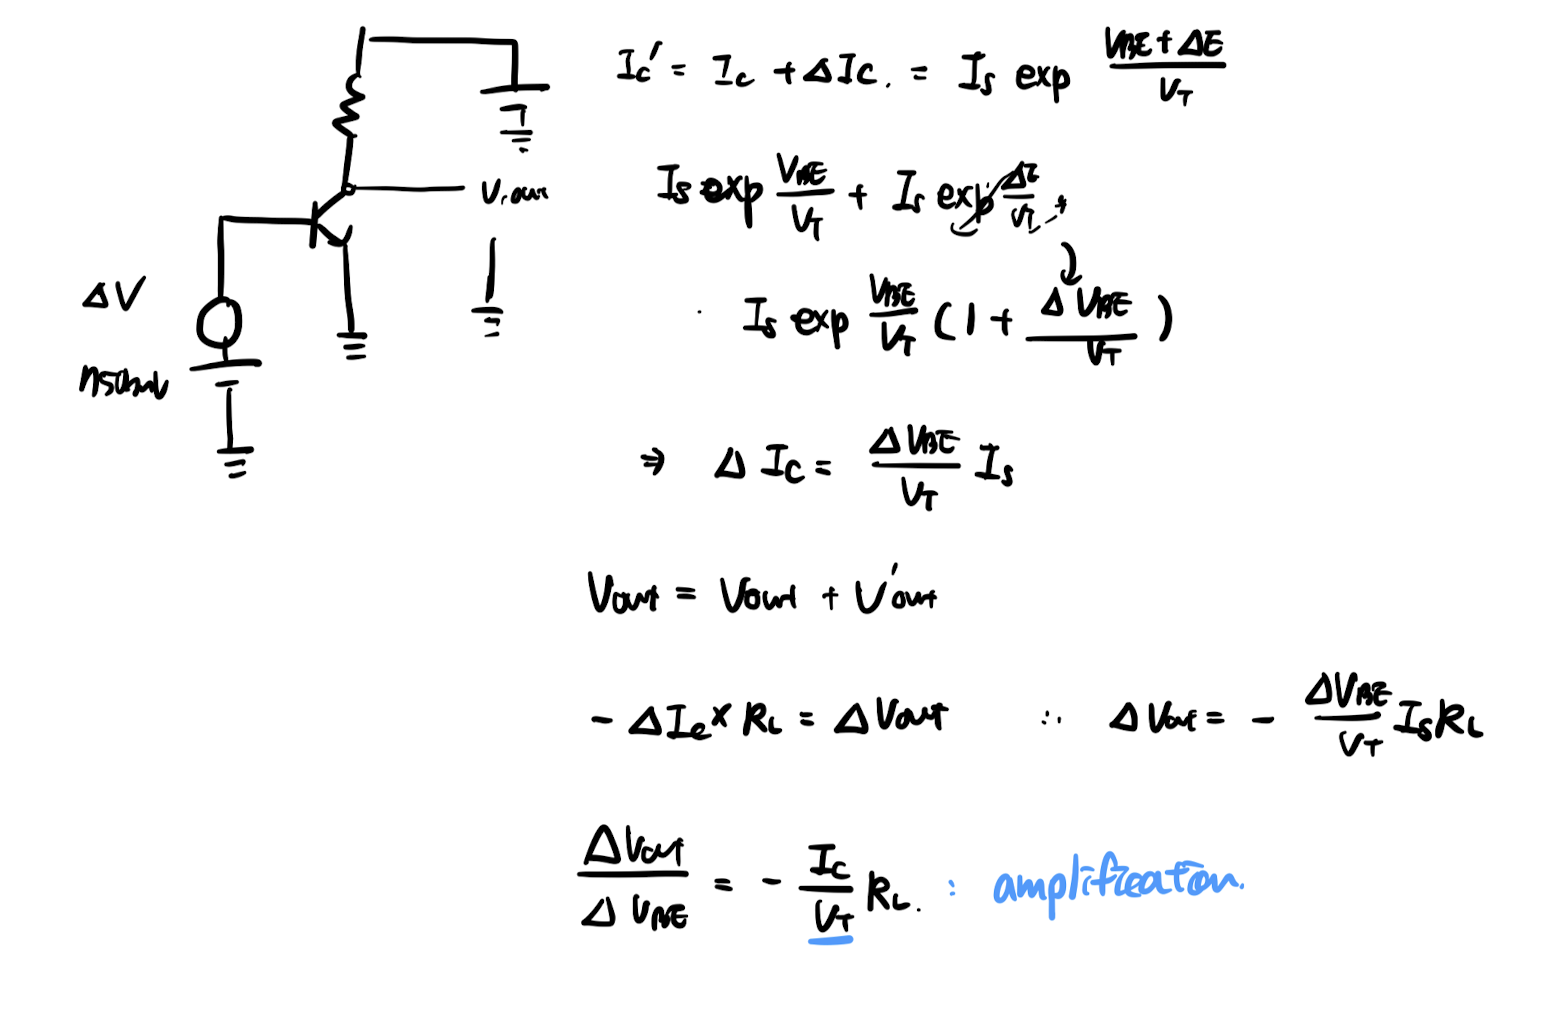 I_c' = I_c + ΔI_C. = I_s exp (V_BE + ΔE)/V_T
I_s exp V_BE/V_T + I_s exp
V_out
I_s exp V_BE/V_T (1 + ΔV_BE/V_T)
ΔV
⇒ ΔI_C = ΔV_BE/V_T I_s
V_out = V_out + V'_out
- ΔI_e × R_L = ΔV_out ∴ ΔV_out = - ΔV_BE/V_T I_s R_L
ΔV_out/ΔV_BE = - I_C/V_T R_L. : amplification.